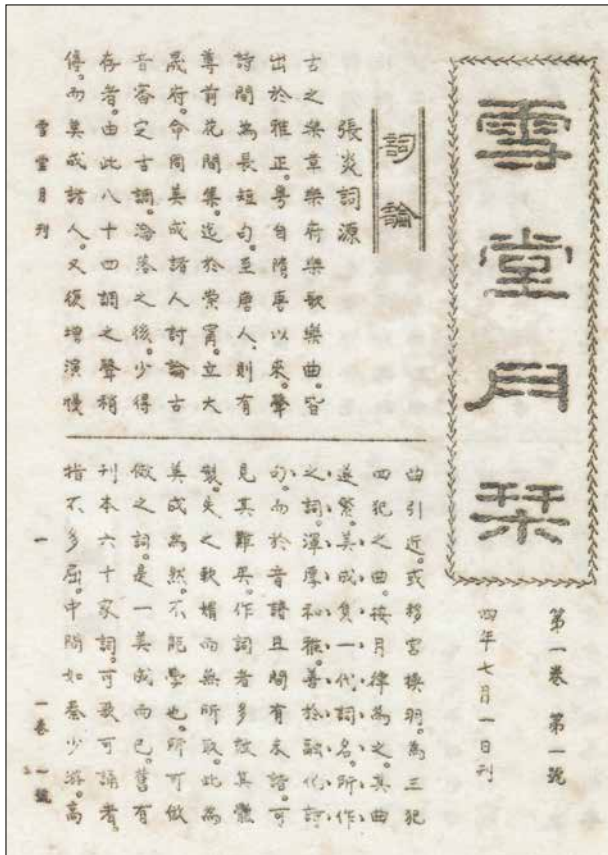 雪堂月栞
第一卷 第一號
四年七月一日刊
詞論
張炎詞源
古之樂章樂府樂歌樂曲。皆
出於雅正。粵自隋唐以來。聲
詩間為長短句。至唐人、則有
尊前花間集。迄於崇寧。立大
晟府。命周美成諸人討論古
音審定古調。淪落之後。少得
存者。由此八十四調之聲稍
傳。而美成諸人。又復增演慢
曲引近。或移宮換羽。為三犯
四犯之曲。按月律為之。其曲
遂繁。美成負一代詞名。所作
之詞。渾厚和雅。善於融化詩
句。而於音譜且間有未諧。可
見其難矣。作詞者多效其體
製。失之軟媚而無所取。此為
美成為然。不能學也。所可倣
倣之詞。是一美成而已。舊有
刊本六十家詞。可歌可誦者。
指不多屈。中間如秦少游。高
雪堂月刊 一 一卷一號